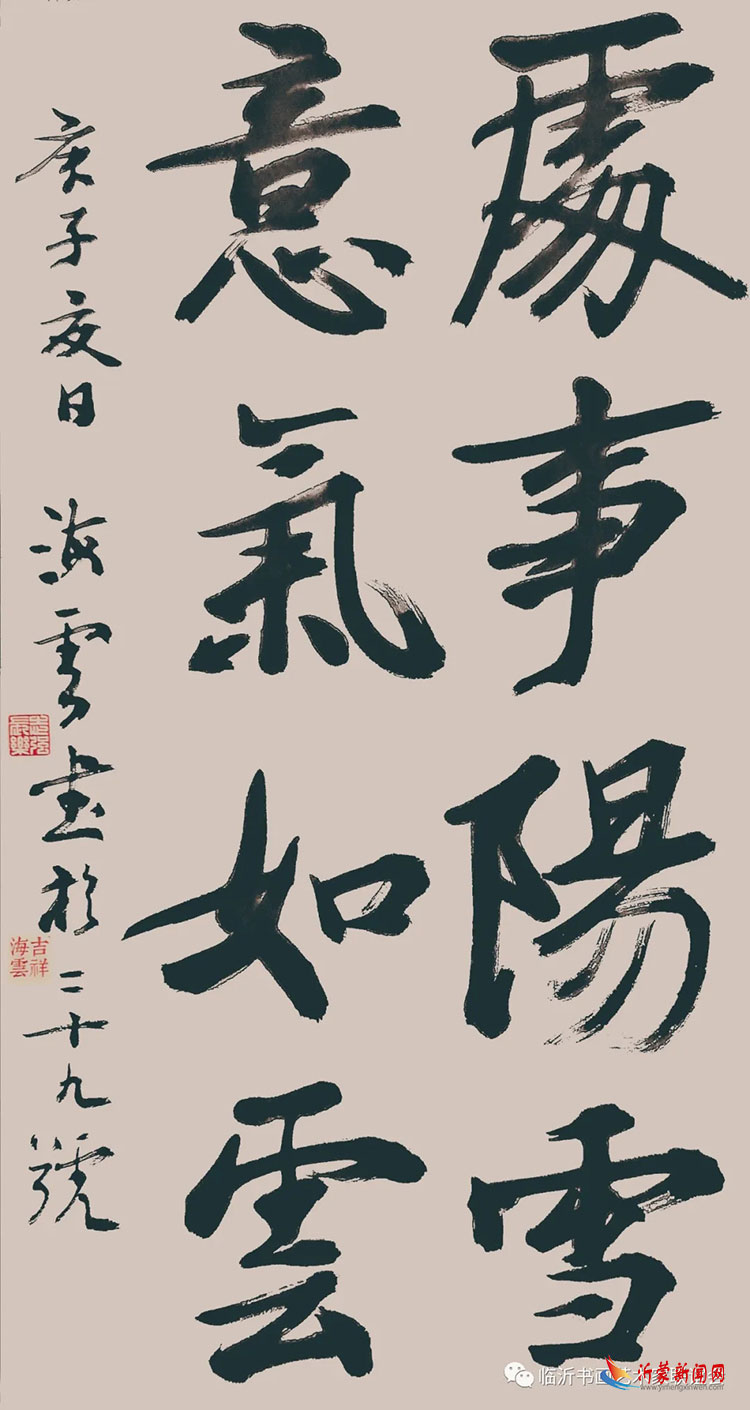 處事陽雪
意氣如雲
庚子夏日 海雲书於二十九號
吉祥
海雲
临沂书画艺术家
沂蒙新闻网
www.yimengxinwen.com